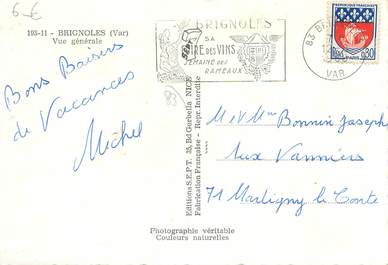 6 €
193-11 - BRIGNOLES (Var)
Vue générale
BRIGNOLES
SA
FOIRE DES VINS
SEMAINE DES
RAMEAUX
83
83 BRIGNOLES
VAR
0,30
PARIS
Bons Baisers
de Vacances
Michel
Editions S.E.P.T. 35, Bd Gorbella NICE
Fabrication Française - Repr. Interdite
M et Mme Bonnin Joseph
Aux Vanniers
71 Martigny le Comte
Photographie véritable
Couleurs naturelles